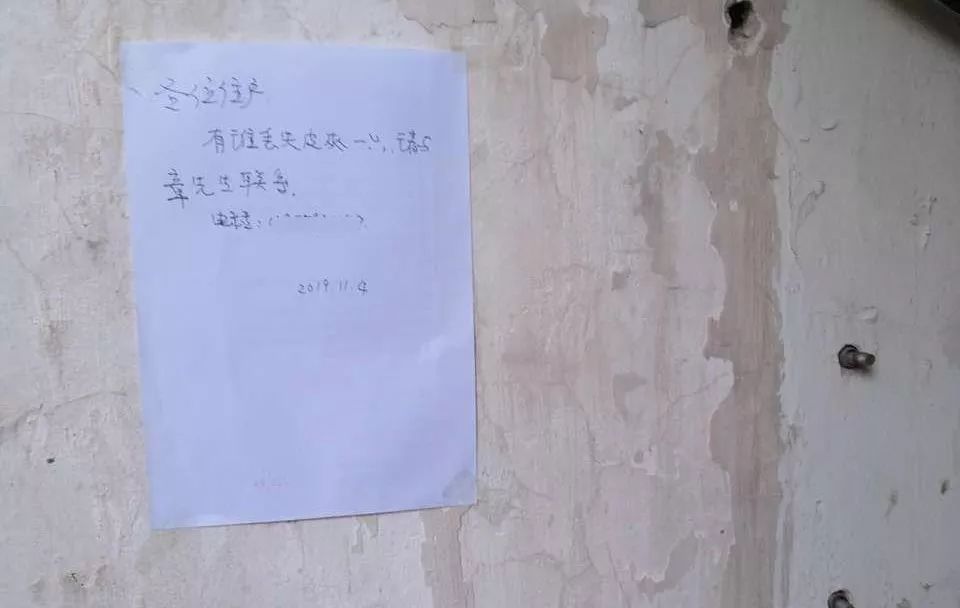 各位住户
有谁丢失皮夹一只,请与
章先生联系.
电话:
2019.11.4